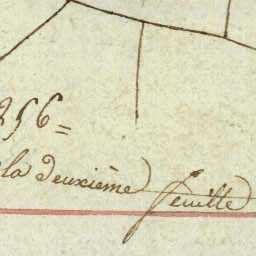 256=
la deuxième feuille